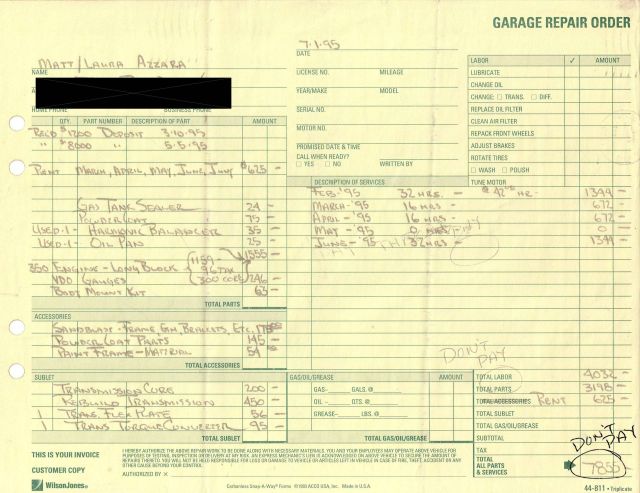 GARAGE REPAIR ORDER
7-1-95
DATE
MATT/LAURA AZZARA
NAME
HOME PHONE BUSINESS PHONE
LICENSE NO. MILEAGE
YEAR/MAKE MODEL
SERIAL NO.
MOTOR NO.
PROMISED DATE & TIME
CALL WHEN READY?
☐ YES ☐ NO WRITTEN BY
LABOR ✓ AMOUNT
LUBRICATE
CHANGE OIL
CHANGE: ☐ TRANS. ☐ DIFF.
REPLACE OIL FILTER
CLEAN AIR FILTER
REPACK FRONT WHEELS
ADJUST BRAKES
ROTATE TIRES
☐ WASH ☐ POLISH
TUNE MOTOR
QTY. PART NUMBER DESCRIPTION OF PART AMOUNT
REC'D $1200 DEPOSIT 3-10-95
" $8000 " 5-5-95
RENT MARCH, APRIL, MAY, JUNE, JULY $625 -
GAS TANK SEALER 24 -
POWDERCOAT 75 -
USED-1- HARMONIC BALANCER 35 -
USED-1- OIL PAN 25 -
350 ENGINE - LONG BLOCK (1159- 96 TAX 300 CORE) 1555 -
VDO GAUGES 246 -
BODY MOUNT KIT 63 -
TOTAL PARTS
DESCRIPTION OF SERVICES
FEB. '95 32 HRS. - $42 HR. 1344 -
MARCH - '95 16 HRS 672 -
APRIL - '95 16 HRS 672 -
MAY - '95 0 HRS 0 -
JUNE - '95 32 HRS 1344 -
ACCESSORIES
SANDBLAST - FRAME, GM, BRACKETS, ETC. 175
POWDER COAT PARTS 145 -
PAINT FRAME - MATERIAL 54
TOTAL ACCESSORIES
SUBLET
TRANSMISSION CORE 200 -
REBUILD TRANSMISSION 450 -
1 TRANS. FLEX PLATE 56 -
1 TRANS TORQUE CONVERTER 95 -
TOTAL SUBLET
GAS/OIL/GREASE AMOUNT
GAS- GALS. @
OIL - QTS. @
GREASE- LBS. @
TOTAL GAS/OIL/GREASE
DON'T PAY
TOTAL LABOR 4032 -
TOTAL PARTS 3198 -
TOTAL ACCESSORIES RENT 625 -
TOTAL SUBLET
TOTAL GAS/OIL/GREASE
SUBTOTAL
TAX
TOTAL ALL PARTS & SERVICES 7855
DON'T PAY
THIS IS YOUR INVOICE
CUSTOMER COPY
WilsonJones
I HEREBY AUTHORIZE THE ABOVE REPAIR WORK TO BE DONE ALONG WITH NECESSARY MATERIALS. YOU AND YOUR EMPLOYEES MAY OPERATE ABOVE VEHICLE FOR PURPOSES OF TESTING, INSPECTION OR DELIVERY AT MY RISK. AN EXPRESS MECHANICS LIEN IS ACKNOWLEDGED ON ABOVE VEHICLE TO SECURE THE AMOUNT OF REPAIRS THERETO. YOU WILL NOT BE HELD RESPONSIBLE FOR LOSS OR DAMAGE TO VEHICLE OR ARTICLES LEFT IN VEHICLE IN CASE OF FIRE, THEFT, ACCIDENT OR ANY OTHER CAUSE BEYOND YOUR CONTROL.
AUTHORIZED BY ×
Carbonless Snap-A-Way® Forms ©1993 ACCO USA, Inc. Made in U.S.A.
44-811 • Triplicate